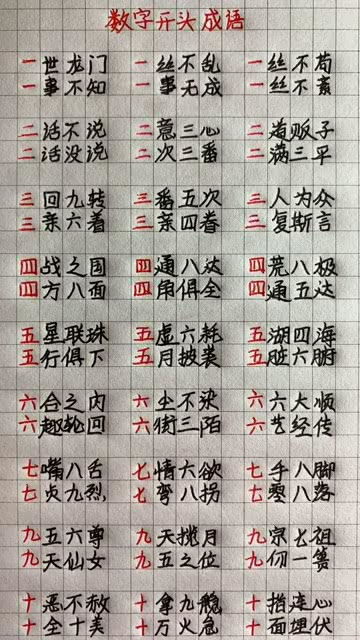 数字开头成语
一世龙门 一丝不乱 一丝不苟
一事不知 一事无成 一丝不紊
二话不说 二意三心 二道贩子
二话没说 二次三番 二满三平
三回九转 三番五次 三人为众
三亲六着 三亲四眷 三复斯言
四战之国 四通八达 四荒八极
四方八面 四角俱全 四通五达
五星联珠 五虚六耗 五湖四海
五行俱下 五月披裘 五脏六腑
六合之内 六尘不染 六六大顺
六趣轮回 六街三陌 六艺经传
七嘴八舌 七情六欲 七手八脚
七贞九烈 七弯八拐 七零八落
九五六尊 九天揽月 九宗七祖
九天仙女 九五之位 九仞一篑
十恶不赦 十拿九稳 十指连心
十全十美 十万火急 十面埋伏